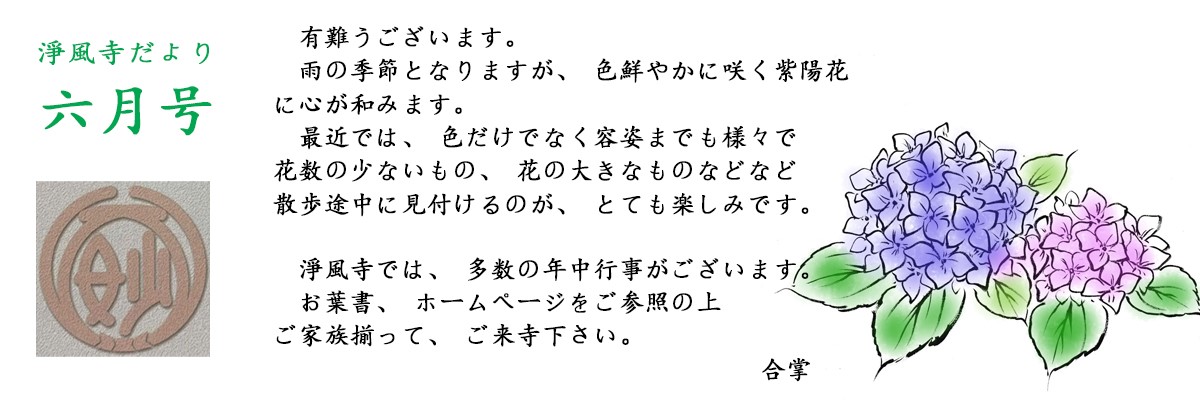 淨風寺だより
六月号
有難うございます。
雨の季節となりますが、 色鮮やかに咲く紫陽花
に心が和みます。
最近では、 色だけでなく容姿までも様々で
花数の少ないもの、 花の大きなものなどなど
散歩途中に見付けるのが、 とても楽しみです。
淨風寺では、 多数の年中行事がございます。
お葉書、 ホームページをご参照の上
ご家族揃って、 ご来寺下さい。
合掌